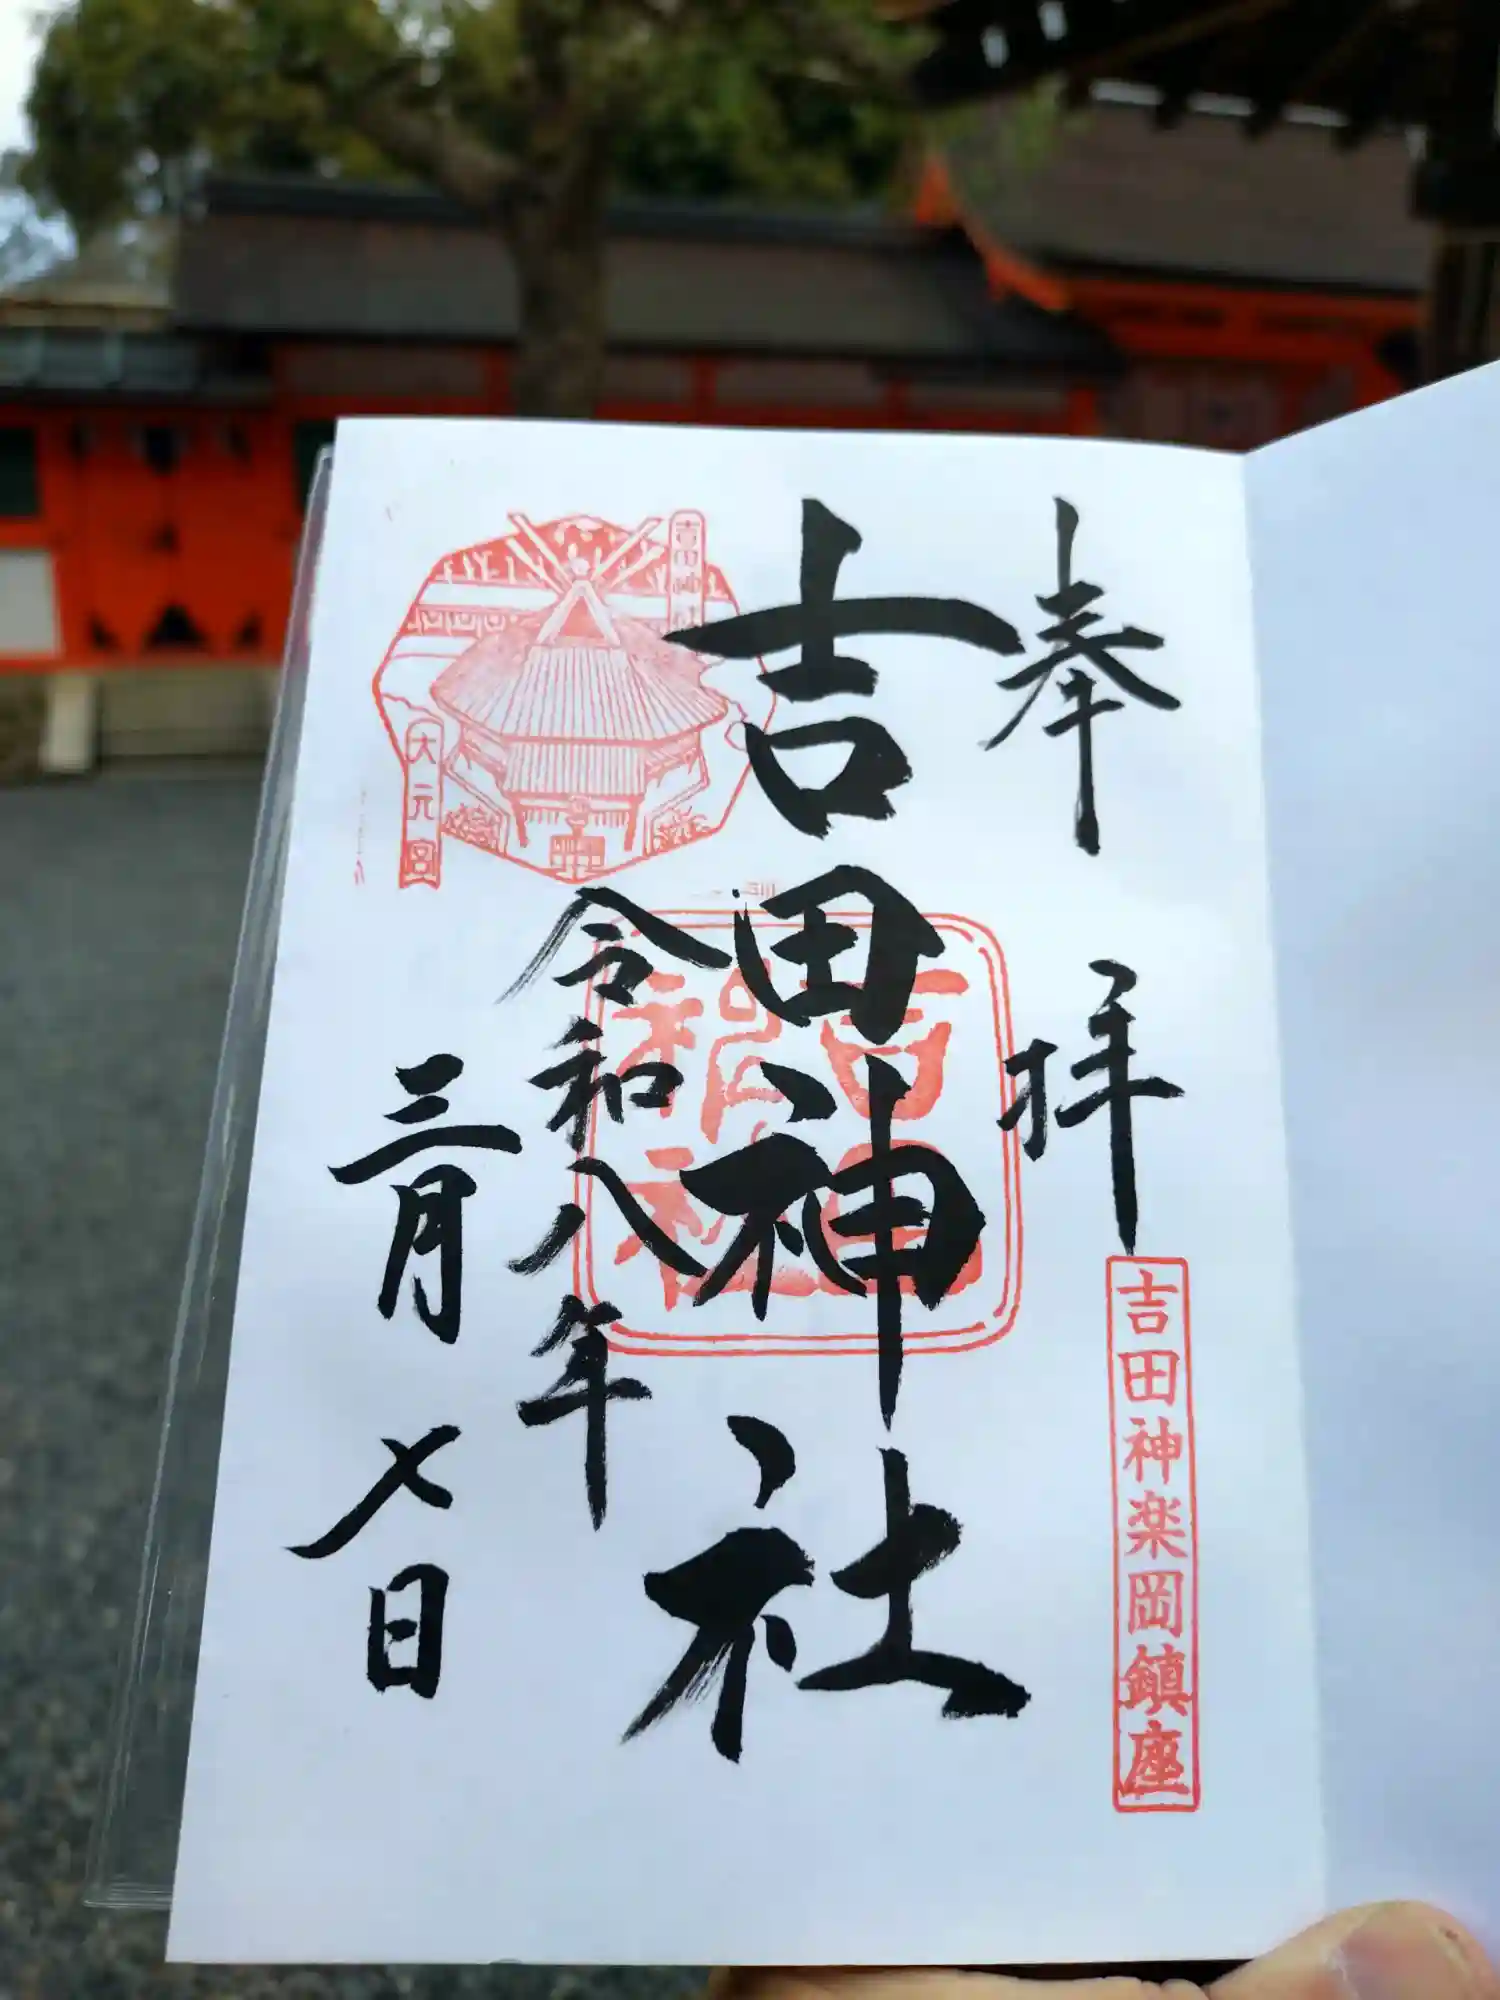 奉拝
吉田神楽岡鎮座
吉田神社
令和八年
三月七日
吉田神社
大元宮